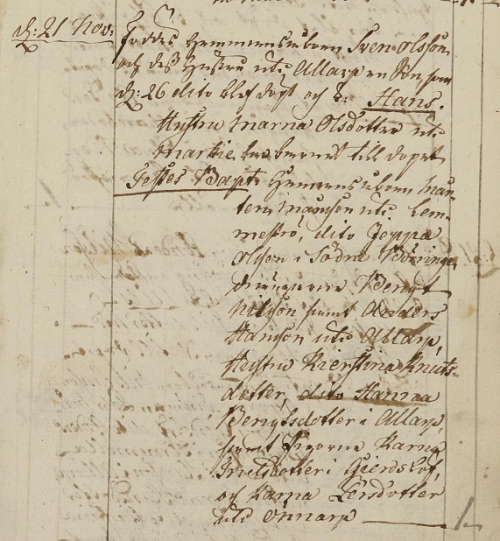 D: 21 Nov: Föddes Hemmansåboen Sven Olsson
och deß Hustru uti Allarp en Son som
D: 26 dito blef döpt och k: Hans.
Hustru Marna Olsdotter uti
Markie bar barnet till dopet
Testes Bapt: Hemmansåboen Mår-
ten Månsson uti Lem-
meströ, dito Jeppa
Olsson i Södra Börringe,
drängarna Bengt
Nilsson samt Anders
Hansson uti Allarp,
Hustru Kierstina Knuts-
dotter, dito Hanna
Bengtsdotter i Allarp,
samt Pigorna Karna
i
och Karna
uti Önnarp